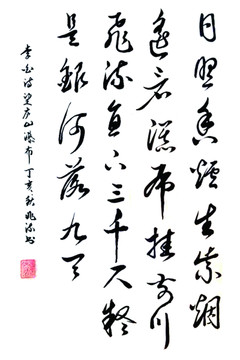 日照香炉生紫烟
遥看瀑布挂前川
飞流直下三千尺疑
是银河落九天
李白诗望庐山瀑布丁亥秋兆流书